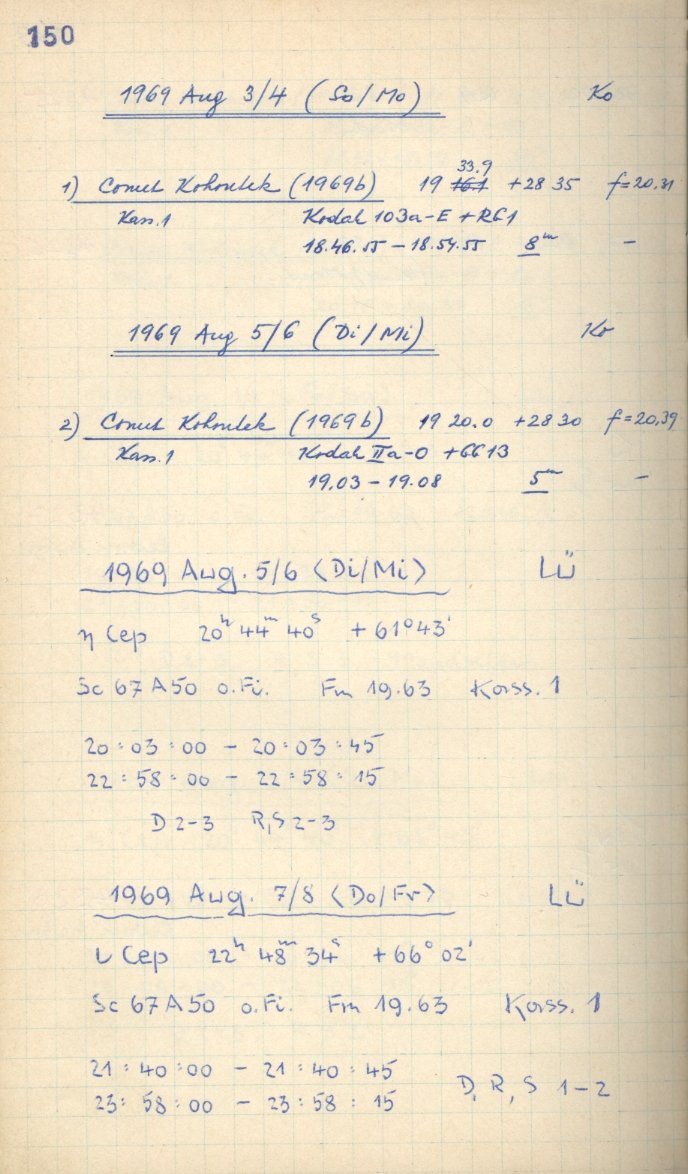 150
1969 Aug 3/4 (So/Mo) Ko
33.9
1) Comet Kohoutek (1969b) 19 16.1 +28 35 f=20,31
Kass. 1 Kodak 103a-E + RG1
18.46.55 – 18.54.55 8ᵐ –
1969 Aug 5/6 (Di/Mi) Ko
2) Comet Kohoutek (1969b) 19 20.0 +28 30 f=20,39
Kass. 1 Kodak IIa-O + GG13
19.03 – 19.08 5ᵐ –
1969 Aug. 5/6 (Di/Mi) Lü
η Cep 20ʰ 44ᵐ 40ˢ + 61°43'
Sc 67 A 50 o. Fi. Fm 19.63 Kass. 1
20:03:00 – 20:03:45
22:58:00 – 22:58:15
D 2-3 R,S 2-3
1969 Aug. 7/8 (Do/Fr) Lü
ι Cep 22ʰ 48ᵐ 34ˢ +66° 02'
Sc 67 A 50 o. Fi. Fm 19.63 Kass. 1
21:40:00 – 21:40:45
23:58:00 – 23:58:15 D, R, S 1-2